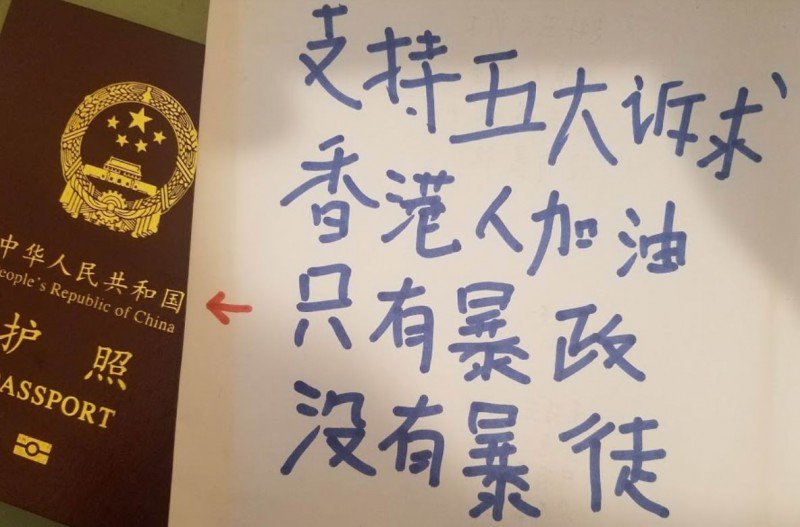 中华人民共和国
eople's Republic of China
护照
PASSPORT
支持五大诉求
香港人加油
只有暴政
没有暴徒